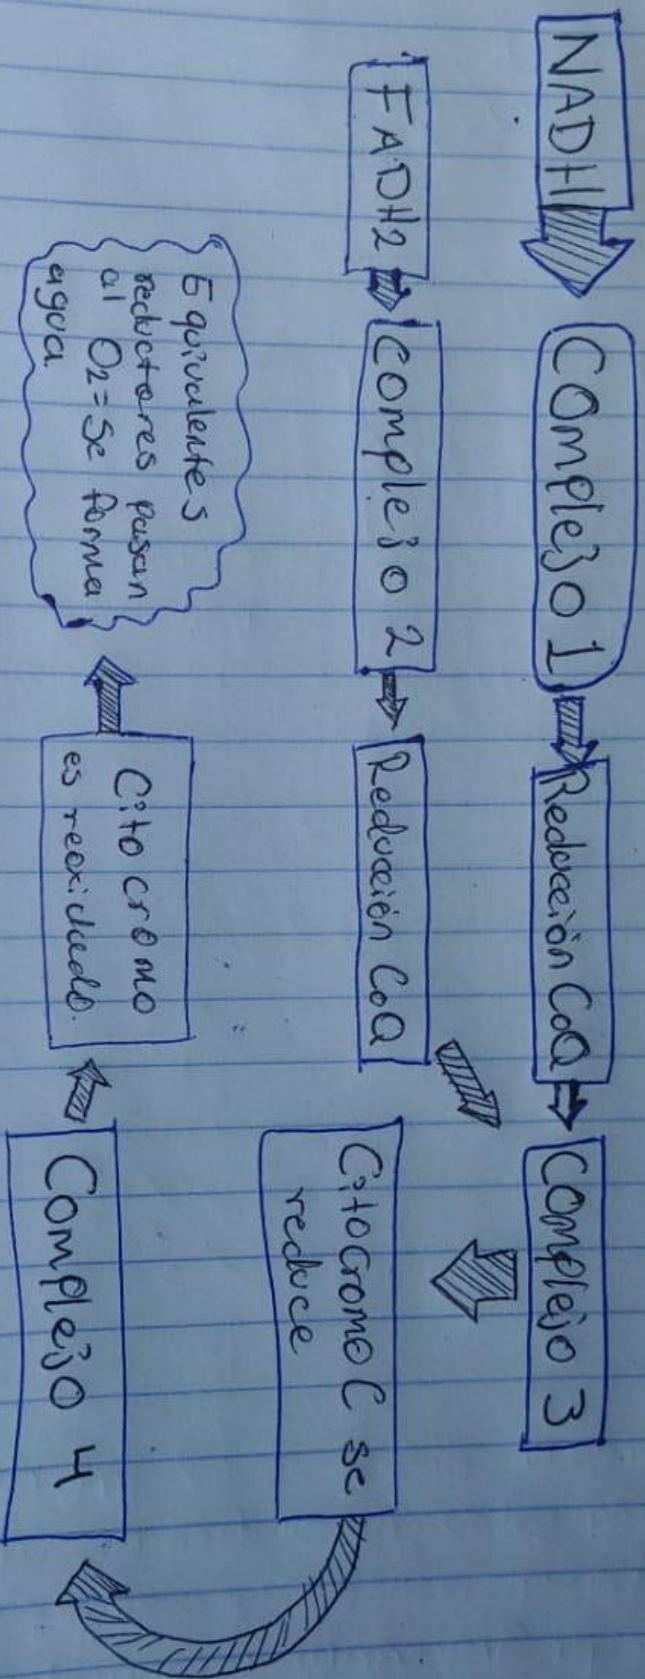 NADH
COmplejo 1
Reducción CoQ
COmplejo 3
FADH2
complejo 2
Reducción CoQ
CitocromO C se
reduce
Complejo 4
Citocromo
es reoxidado.
Equivalentes
reductores pasan
al O2 = Se forma
agua